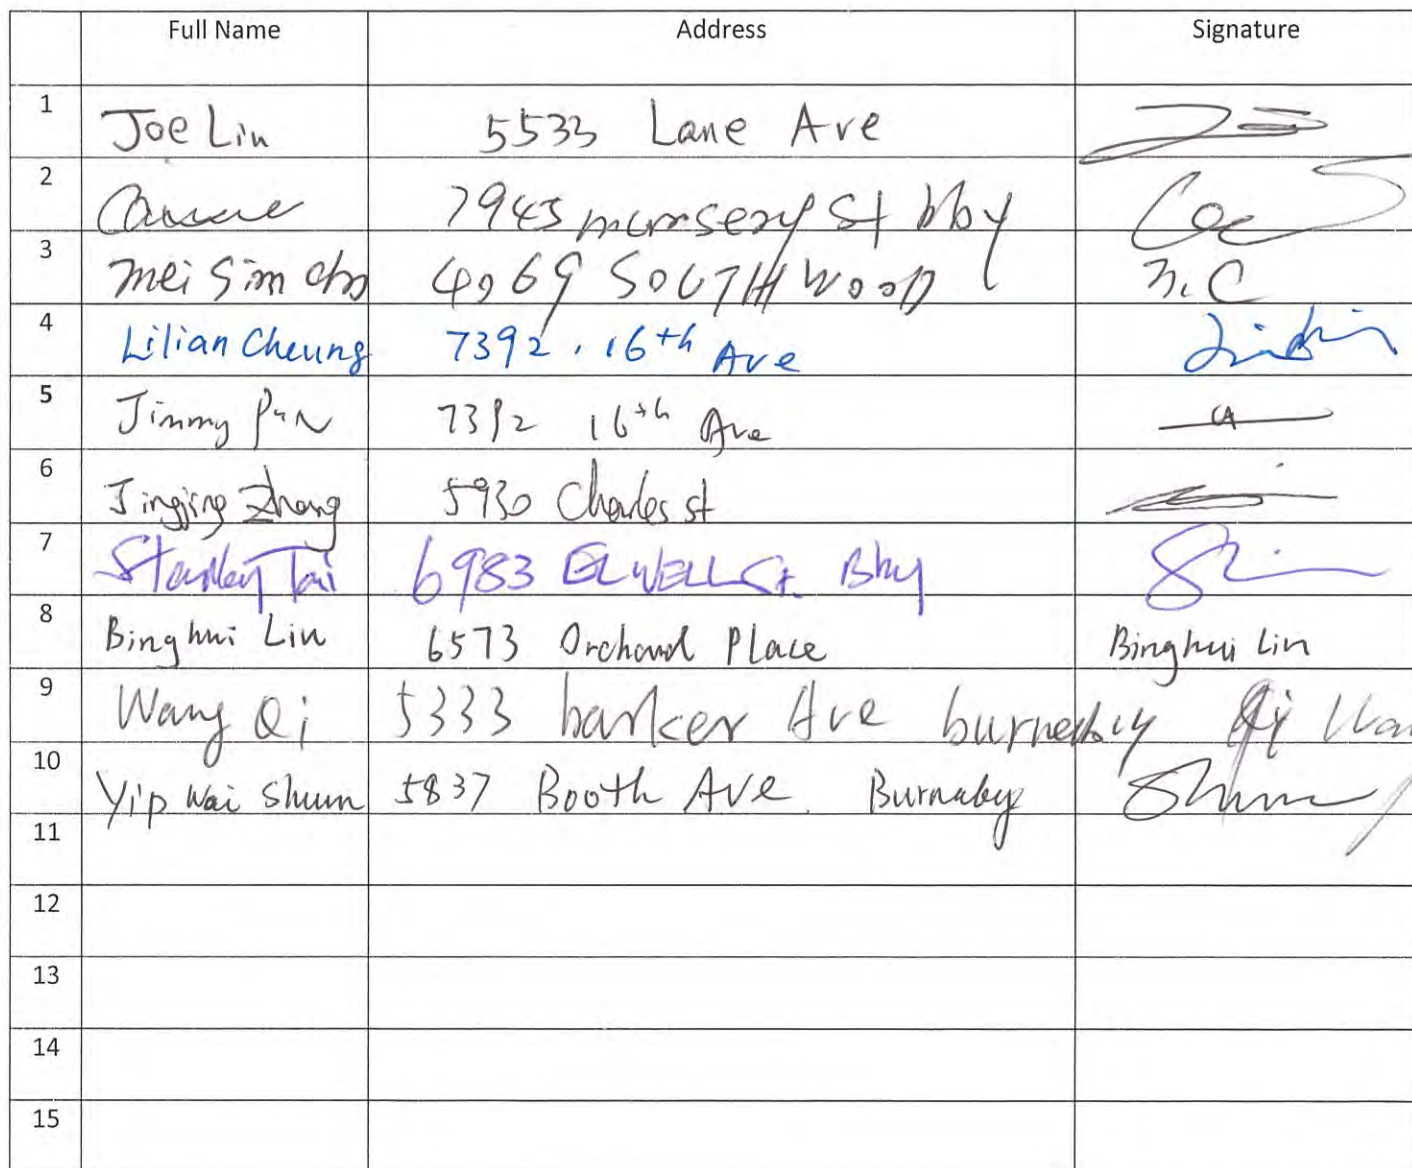 Full Name Address Signature
1 Joe Lin 5533 Lane Ave
2 7943 nursery St bby
3 mei Sim cho 4069 SOUTHWOOD M.C
4 Lilian Cheung 7392 . 16th Ave
5 Jimmy Pun 7392 16th Ave
6 Jingjing Zhang 5930 Charles st
7 Stanley Tai 6983 ELWELL St. Bby
8 Binghui Lin 6573 Orchard Place Binghui Lin
9 Wang Qi 5333 barker Ave burnaby Qi Wan
10 Yip Wai Shun 5837 Booth Ave. Burnaby Shun
11
12
13
14
15